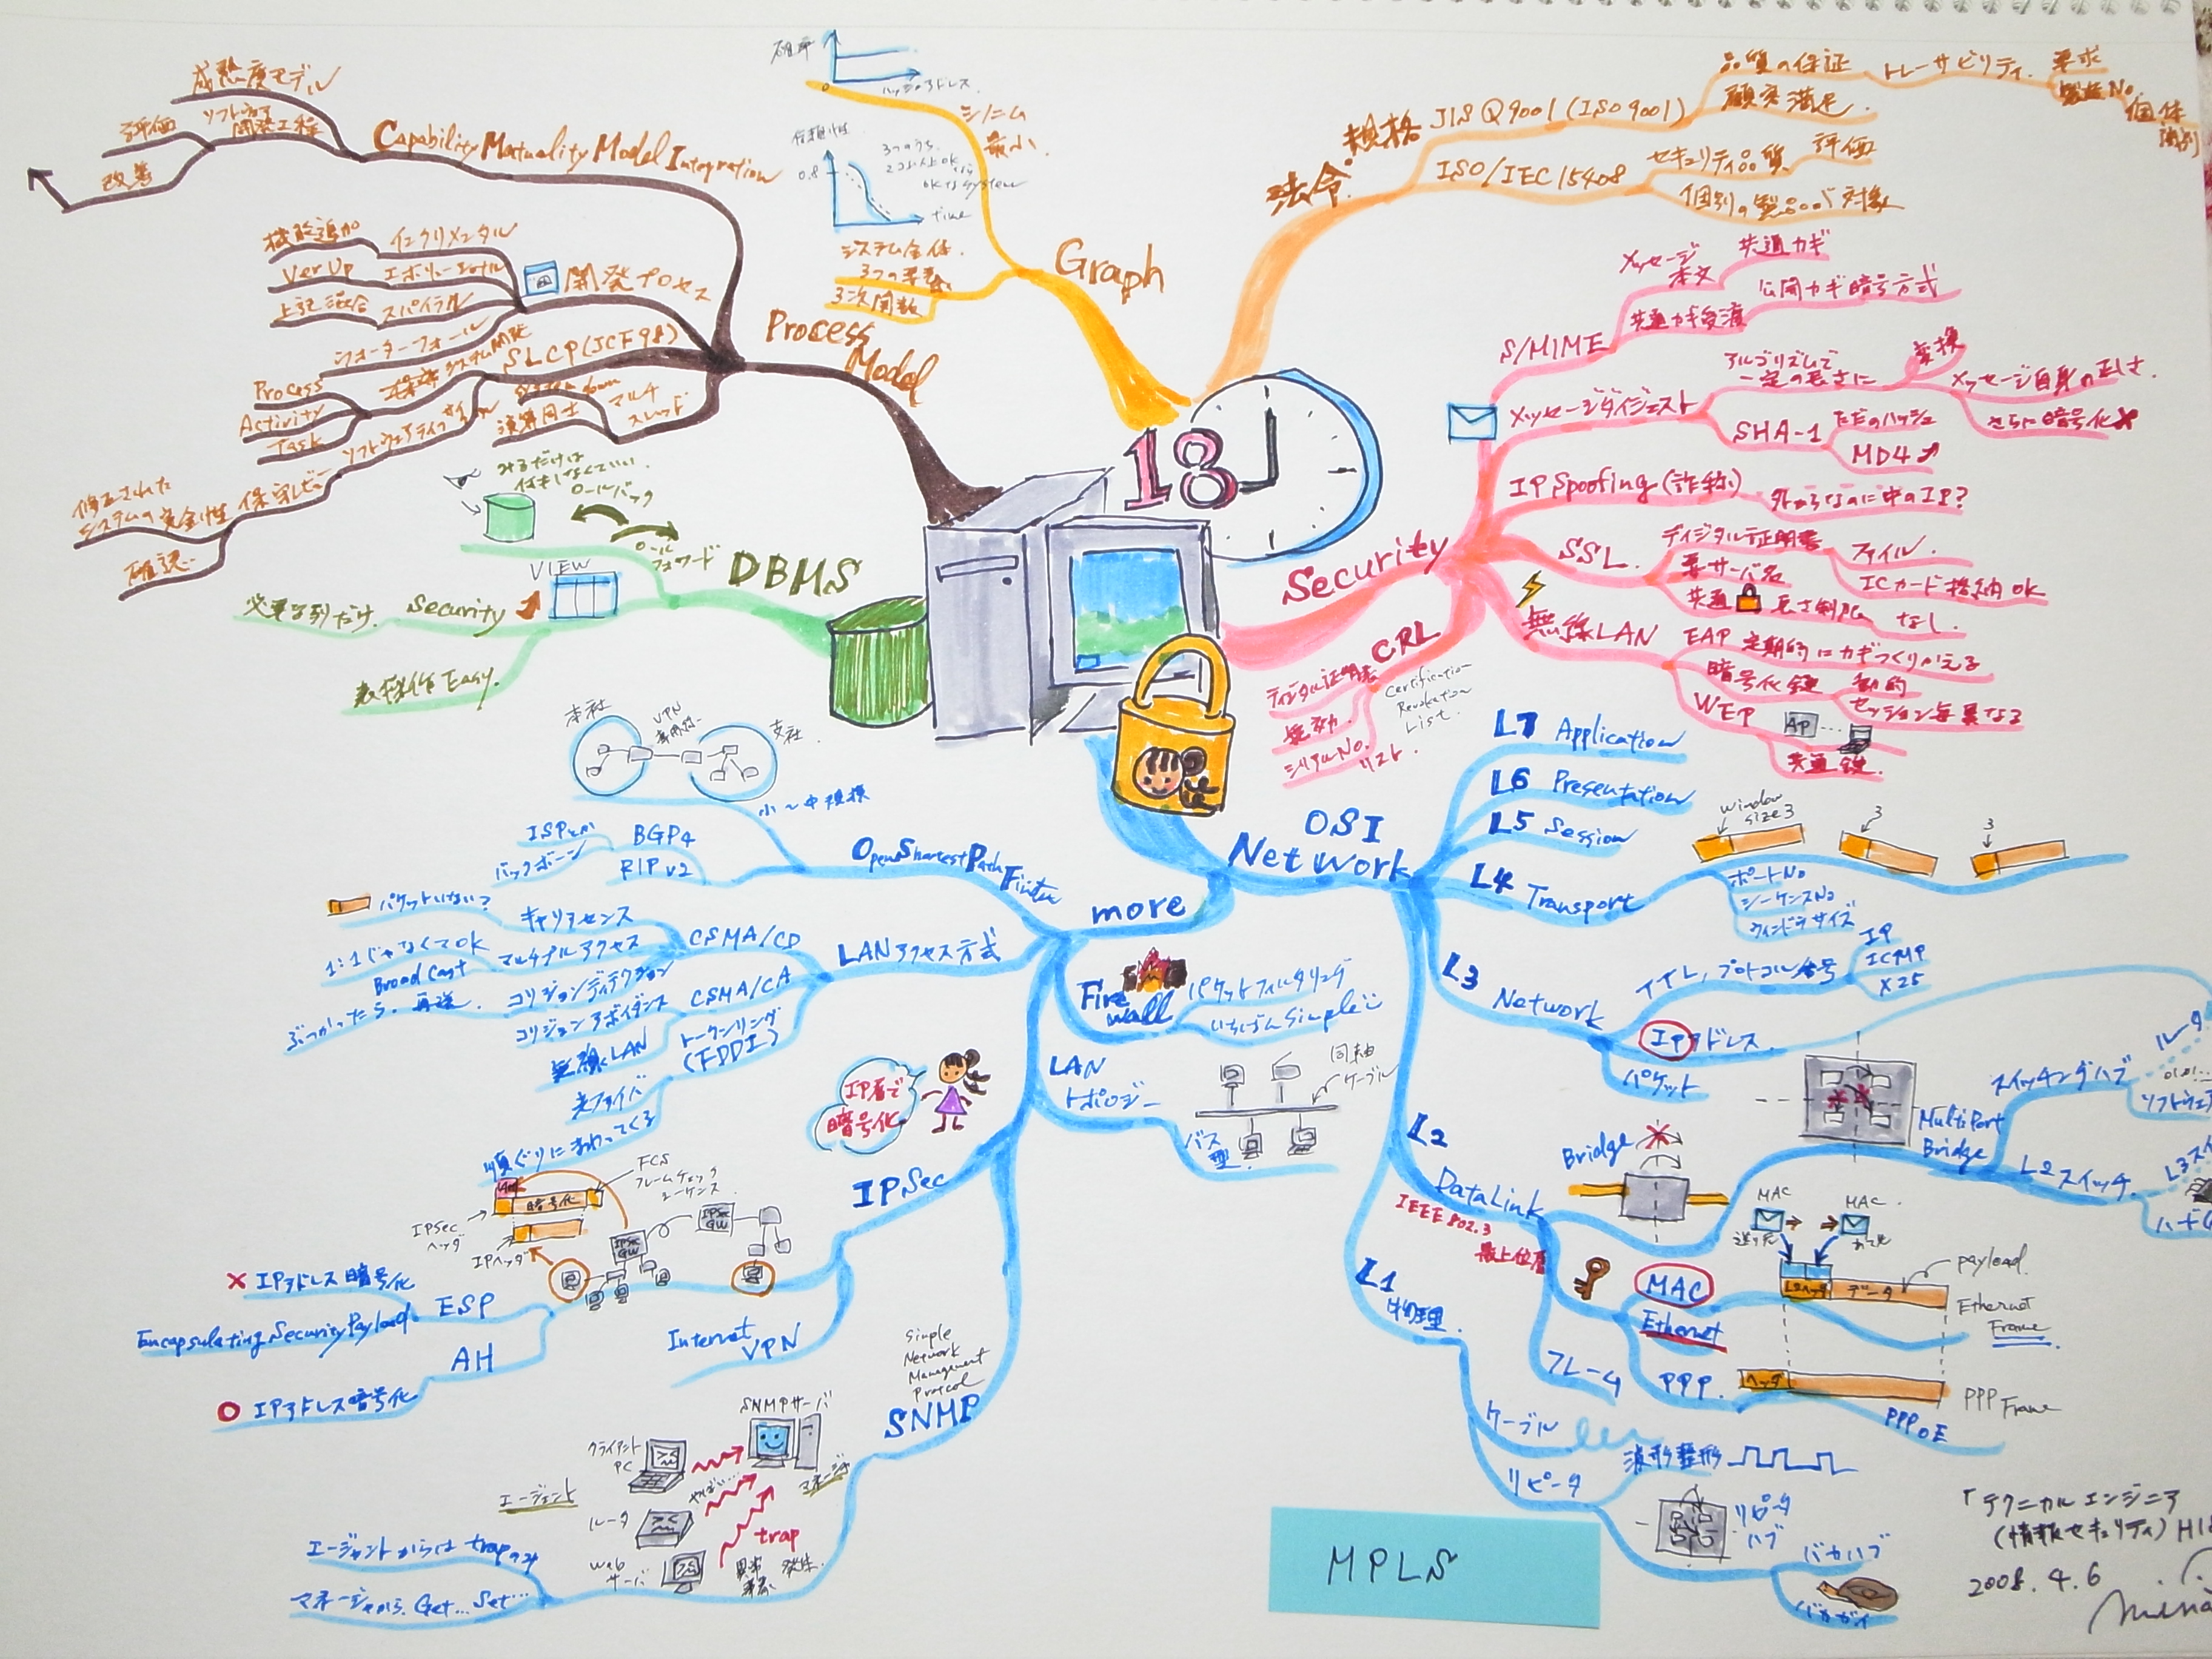 成熟度モデル
ソフトウェア
開発工程
評価
改善
Capability Matuality Model Integration
開発プロセス
インクリメンタル
機能追加
エボリューショナル
Ver Up
スパイラル
上記混合
ウォーターフォール
SLCP(JCF98)
Process
Activity
Task
ソフトウェアライフサイクル
保守レビュー
修正された
システムの完全性
確認
system down
マルチ
スレッド
Process
Model
確率
0
ハッシュアドレス
シノニム
最小
信頼性
0.8
3つのうち
2つ以上OK
なら
OKなsystem
time
システム全体
3つの要素
3次関数
Graph
法令・規格
JIS Q9001 (ISO 9001)
品質の保証
トレーサビリティ
要求
製造No.
個体
識別
顧客満足
ISO/IEC 15408
セキュリティ品質
評価
個別の製品が対象
18
Security
S/MIME
メッセージ
本文
共通カギ
共通カギ受渡
公開カギ暗号方式
メッセージダイジェスト
アルゴリズムで
一定の長さに
変換
メッセージ自身の正しさ
さらに暗号化
SHA-1
ただのハッシュ
MD4
IP Spoofing (詐称)
外からなのに中のIP?
SSL
ディジタル証明書
ファイル
ICカード格納OK
要サーバ名
共通
長さ制限
なし
無線LAN
EAP
定期的にカギつくりかえる
暗号化鍵
動的
セッション毎異なる
WEP
AP
共通鍵
CRL
Certification
Revocation
List
ディジタル証明書
無効
シリアルNo.
リスト
みるだけは
ロールバック
ロール
フォワード
DBMS
VIEW
Security
必要な列だけ
表操作Easy
OSI
Network
L7 Application
L6 Presentation
L5 Session
L4 Transport
window
size 3
3
3
ポートNo
シーケンスNo
ウィンドウサイズ
L3
Network
プロトコル番号
IP
ICMP
X25
IPアドレス
パケット
L2
DataLink
IEEE 802.3
最上位層
Bridge
Multi Port
Bridge
スイッチングハブ
ルータ
ソフトウェ
L2スイッチ
L3スイ
MAC
MAC
送り元
あて先
MAC
L2ヘッダ
データ
payload
Ethernet
Frame
Ethernet
フレーム
PPP
ヘッダ
PPP Frame
PPPoE
L1
物理
ケーブル
リピータ
波形整形
リピータ
ハブ
バカハブ
バカガイ
MPLS
「テクニカルエンジニア
(情報セキュリティ) H18
2008.4.6
more
Open Shortest Path
First
小~中規模
本社
VPN
専用線
支社
BGP4
ISPとか
バックボーン
RIPv2
LANアクセス方式
CSMA/CD
キャリアセンス
パケットいない?
マルチプルアクセス
1:1じゃなくてOK
Broad Cast
コリジョンディテクション
ぶつかったら、再送
CSMA/CA
コリジョンアボイダンス
無線LAN
トークンリング
(FDDI)
光ファイバ
順ぐりにまわってくる
Fire
wall
パケットフィルタリング
いちばんSimple
LAN
トポロジー
バス
型
同軸
ケーブル
IP層で
暗号化
IPSec
FCS
フレームチェック
シーケンス
暗号化
IPSec
ヘッダ
IPヘッダ
IPSec
GW
IPSec
GW
ESP
IPアドレス暗号化
Encapsulating Security Payload
AH
IPアドレス暗号化
Internet
VPN
Simple
Network
Management
Protcol
SNMP
SNMPサーバ
クライアント
PC
エージェント
ルータ
Web
サーバ
マネージャ
trap
発生
エージェントからはtrapのみ
マネージャから Get… Set…